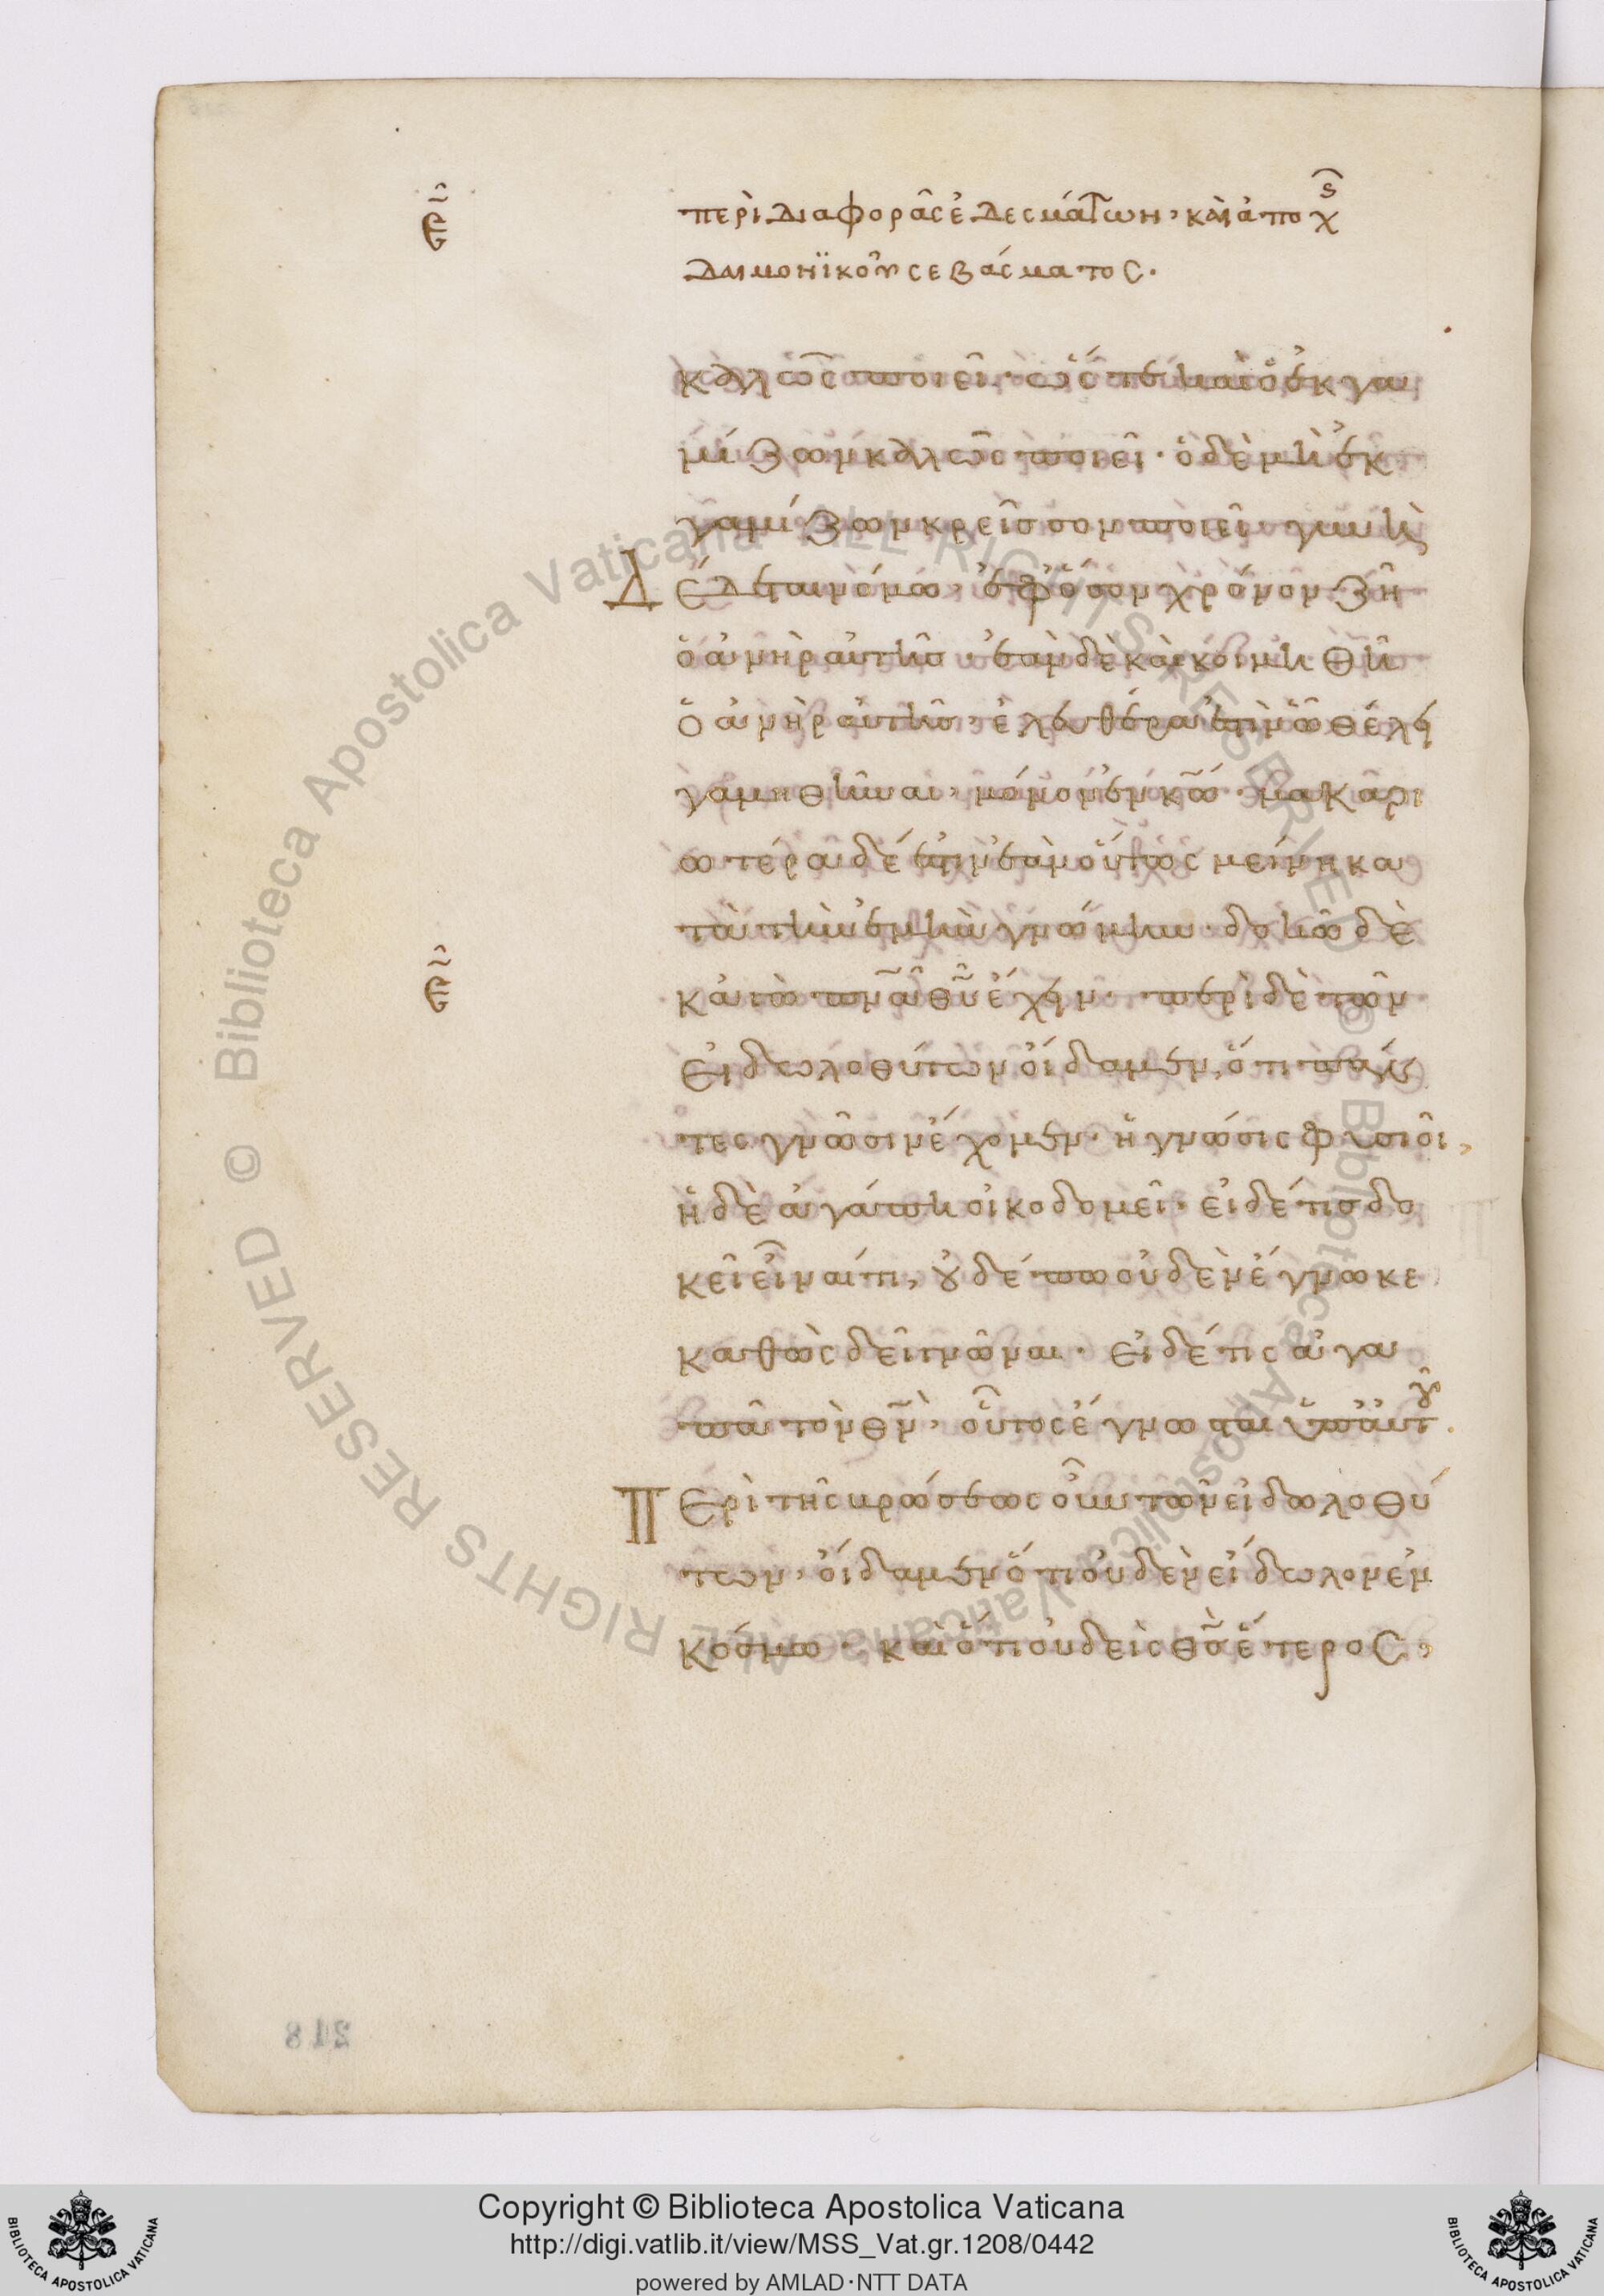 περὶ διαφορᾶς ἐδεσμάτων· καὶ ἀποχ(ῆς)
δαιμονϊκοῦ σεβάσματος.
καλῶς ποιεῖ· ὥστε καὶ ὁ ἐκγα
μίζων καλῶς ποιεῖ· ὁ δὲ μὴ ἐκ
γαμίζων κρεῖσσον ποιεῖ· γυνὴ
Δέδεται νόμω, ἐφ ὅσον χρόνον ζῆ
ὁ ἀνὴρ αὐτῆσ· ἐὰν δὲ καὶ κοιμηθῆ
ὁ ἀνὴρ αὐτῆσ, ἐλευθέρα ἐστὶν ὧ θέλει
γαμηθῆναι, μόνον ἐν κ̅ω̅· μακαρι
ωτέρα δέ ἐστιν ἐὰν οὕτως μείνη κα
τὰ τὴν ἐμὴν γνώμην· δοκῶ δὲ
κἀγὼ π̅ν̅α̅ θ̅υ̅ ἔχειν· περὶ δὲ τῶν
εἰδωλοθύτων οἴδαμεν, ὅτι πάν
τες γνῶσιν ἔχομεν· ἡ γνώσις φυσιοῖ,
ἡ δὲ ἀγάπη οἰκοδομεῖ· εἰ δέ τισ δο
κεῖ εἰδέναί τι, οὐδέπω οὐδὲν ἔγνωκε
καθὼς δεῖ γνῶναι· εἰ δέ τις ἀγα
πᾶ τὸν θ̅ν̅, οὗτος ἔγνωσται ὑπ αὐτοῦ.
Περὶ τῆς βρώσεως οὖν τῶν εἰδωλοθύ
των, οἴδαμεν ὅτι οὐδὲν εἴδωλον ἐν
κόσμω· καὶ ὅτι οὐδεὶς θ̅ς̅ ἕτερος,
218
Copyright © Biblioteca Apostolica Vaticana
http://digi.vatlib.it/view/MSS_Vat.gr.1208/0442
powered by AMLAD·NTT DATA
BIBLIOTECA APOSTOLICA VATICANA
BIBLIOTECA APOSTOLICA VATICANA
© Biblioteca Apostolica Vaticana ALL RIGHTS RESERVED
© Biblioteca Apostolica Vaticana ALL RIGHTS RESERVED